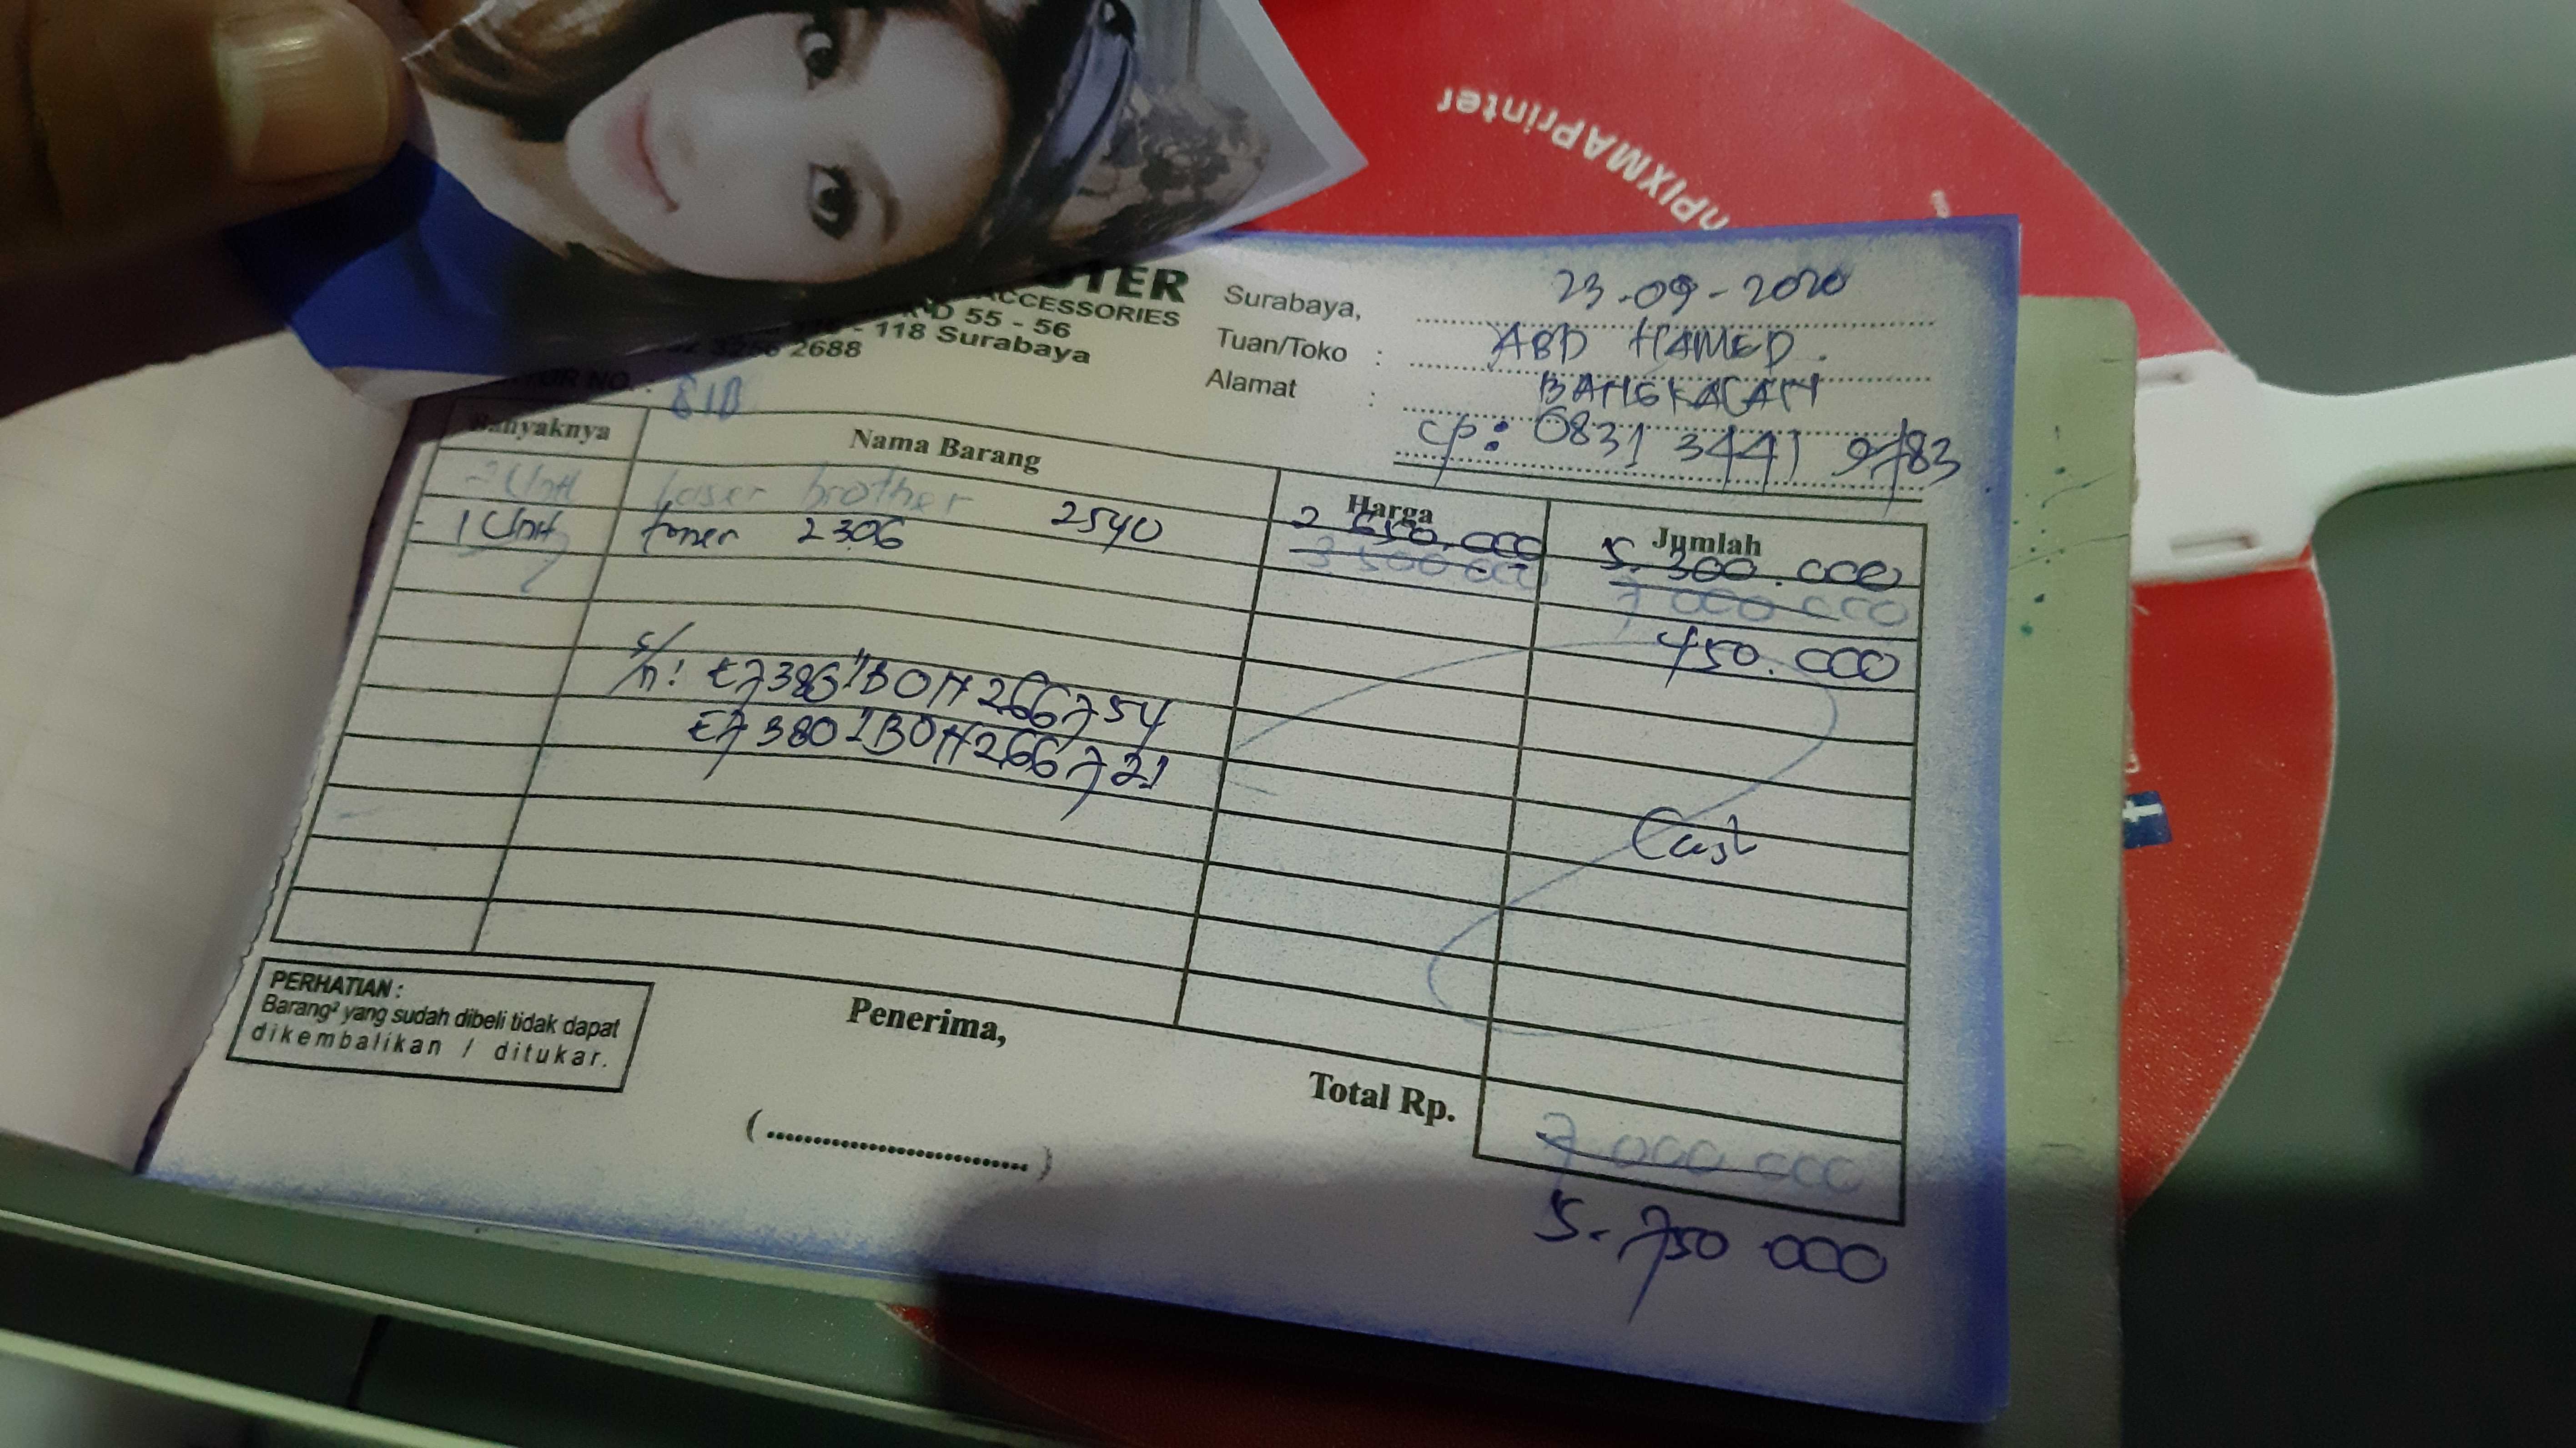 UTER
ACCESSORIES
D 55 - 56
- 118 Surabaya
2688
NO. : 81B
Surabaya, 23-09-2020
Tuan/Toko : ABD HAMED.
Alamat : BANGKALAN
cp: 0831 3441 9783
Banyaknya Nama Barang Harga Jumlah
2 Unit Laser brother 2540 2 650.000 5.300.000
3 500 000 7 000 000
- 1 Unit toner 2306 450.000
s/n: E73861BOH266754
E73801BOH266721
Cash
PERHATIAN :
Barang² yang sudah dibeli tidak dapat
dikembalikan / ditukar.
Penerima,
(..............................)
Total Rp. 7 000 000
5.750 000
nPIXMAPrinter
f